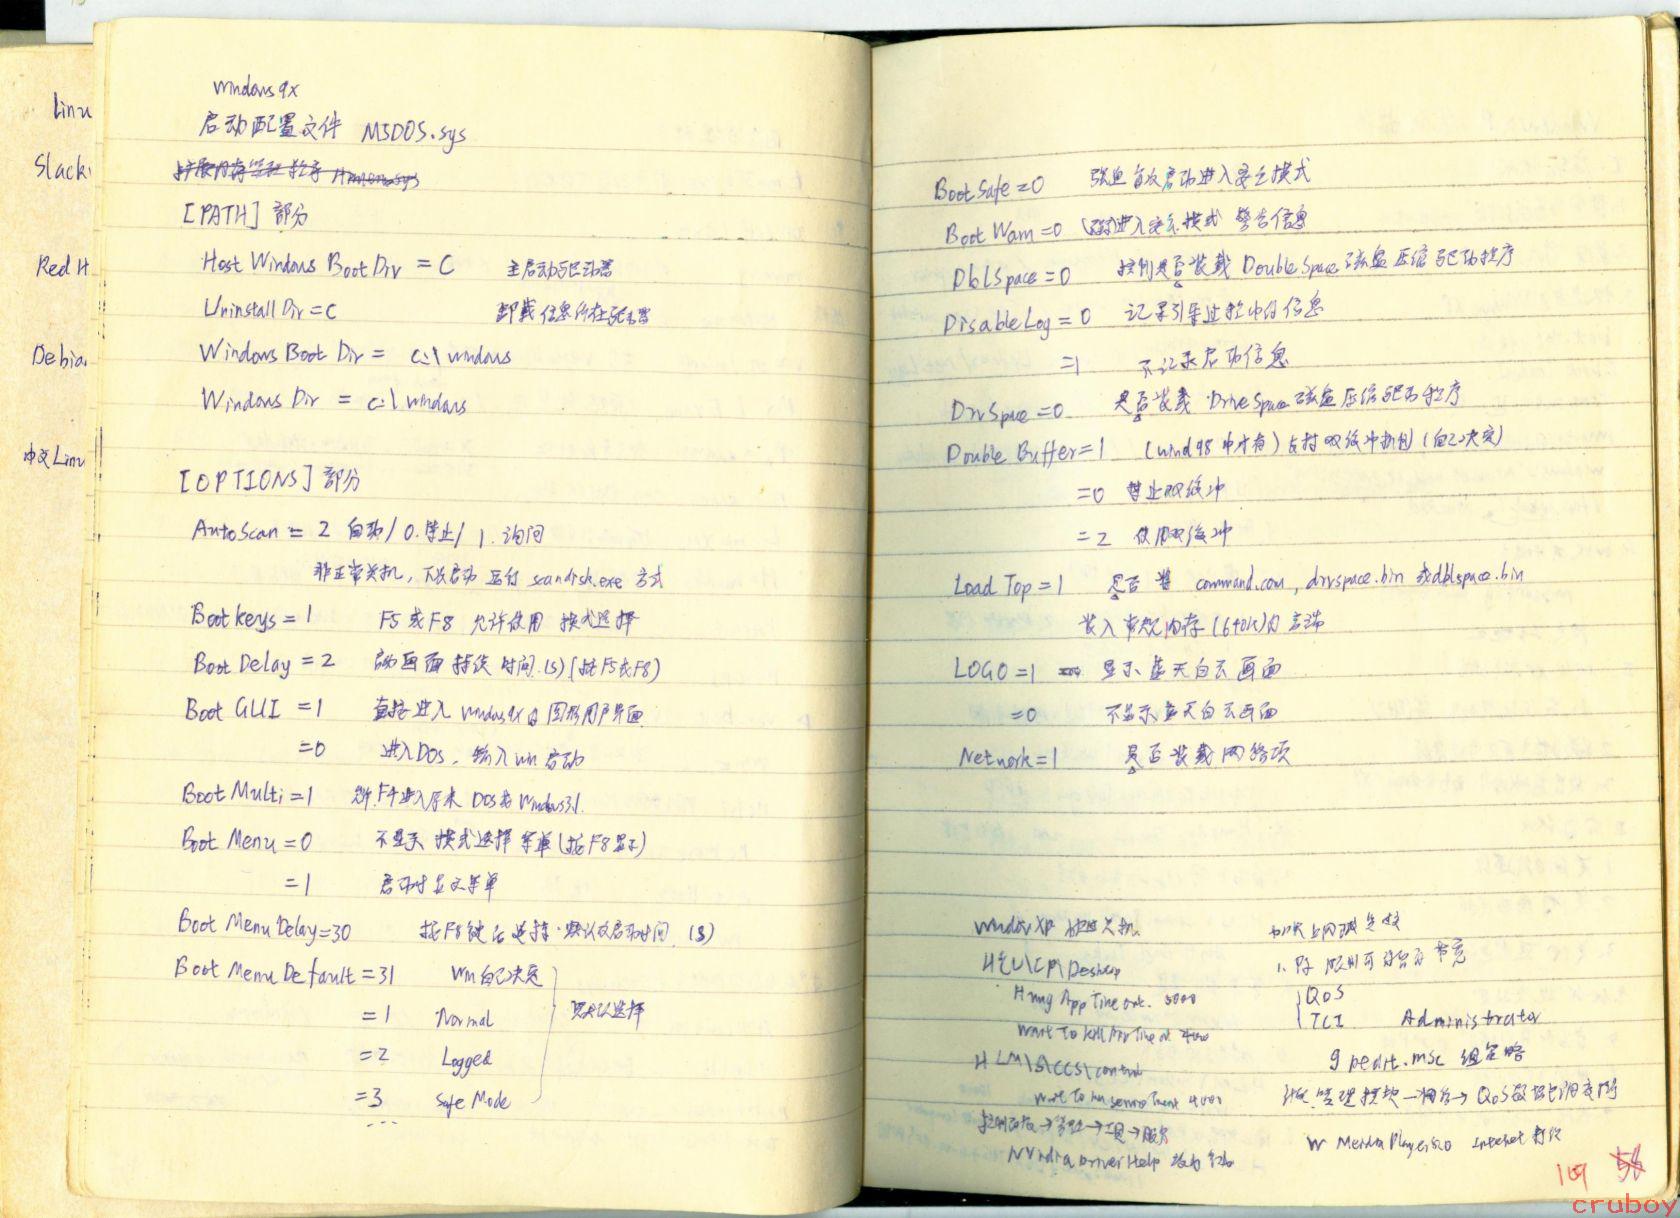 Linu
Slack
Red H
Debia
中文Linu
Windows 9x
启动配置文件 MSDOS.sys
扩展内存管理程序
[PATH] 部分
Host Windows Boot Drv = C 主启动驱动器
Uninstall Dir = C 卸载信息所在驱动器
Windows Boot Dir = c:\windows
Windows Dir = c:\windows
[OPTIONS] 部分
AutoScan = 2 自动/0.禁止/1.询问
非正常关机,下次启动 运行 scandisk.exe 方式
Boot keys = 1 F5 或 F8 允许使用 模式选择
Boot Delay = 2 启动画面持续时间.(s)[按F5或F8)
Boot GUI = 1 直接进入 windows9x的图形用户界面
=0 进入DOS,输入win启动
Boot Multi = 1 F4进入原来 DOS或Windows3.1.
Boot Menu = 0 不显示 模式选择菜单(按F8显示)
=1 启动时显示菜单
Boot Menu Delay=30 按F8键后选择.默认启动时间.(s)
Boot Menu Default = 31 Win自己决定
=1 Normal
=2 Logged 默认选择
=3 Safe Mode
...
Boot Safe = 0 强迫 启动进入安全模式
Boot Warn = 0 进入安全模式 警告信息
DblSpace = 0 控制是否装载 DoubleSpace磁盘压缩驱动程序
Disable Log = 0 记录引导过程中的信息
=1 不记录启动信息
DrvSpace = 0 是否装载 DriveSpace磁盘压缩驱动程序
Double Buffer = 1 (wind98中才有)支持双缓冲机制(自己决定)
=0 禁止双缓冲
=2 使用双缓冲
Load Top = 1 是否将 command.com, drvspace.bin 或dblspace.bin
装入常规内存(640K)的高端
LOGO = 1 显示蓝天白云画面
=0 不显示蓝天白云画面
Network = 1 是否装载网络项
Windows XP 快速关机
HCU\CP\Desktop
Hung App Time out. 5000
Wait To Kill App Time out 4000
HLM\S\CCS\control
Wait To Kill service Timeout 4000
控制面板→管理→工具→服务
NVidia Driver Help
加快上网速度
1. 限制可保留的带宽
QoS
TCI Administrator
gpedit.msc 组策略
管理模块→网络→QoS数据包调度程序
W Media Player Internet
169 58
cruboy